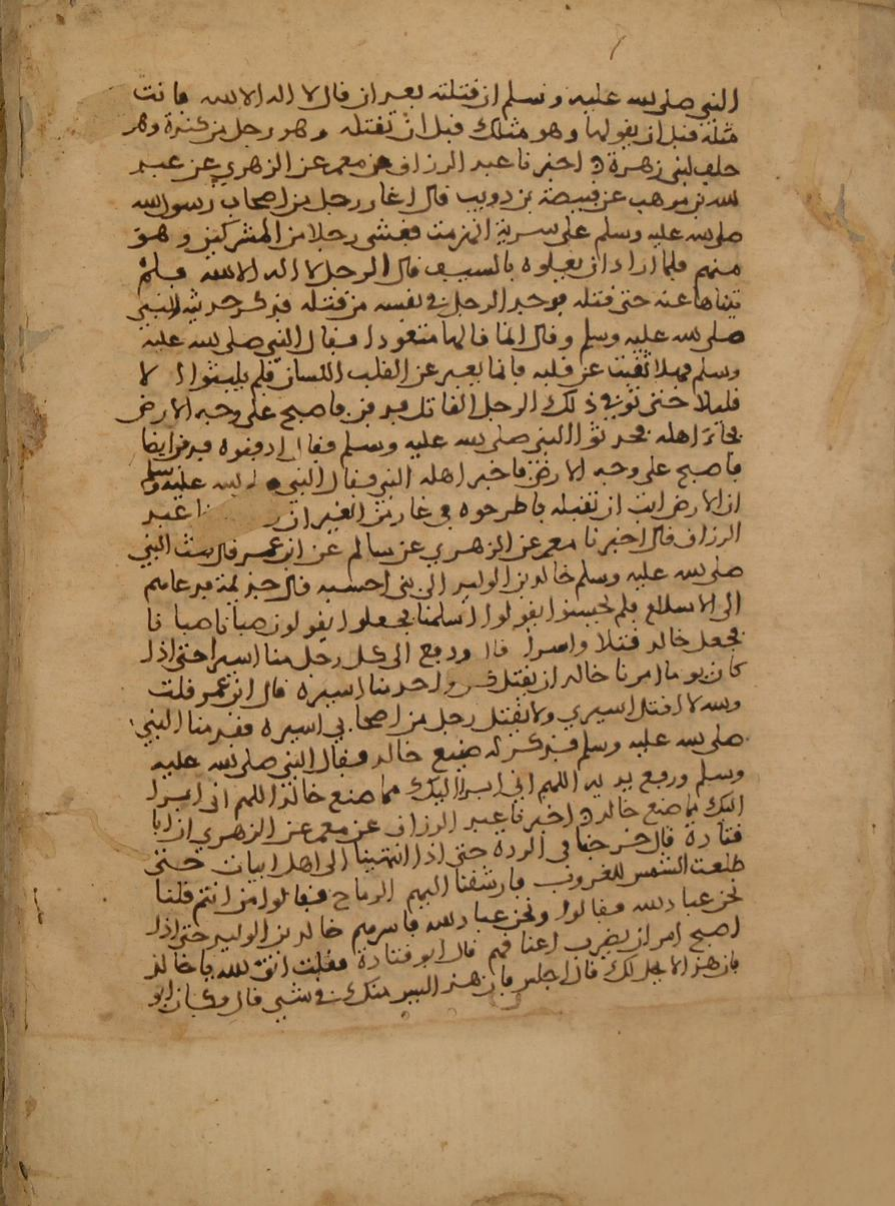 النبي صلى الله عليه وسلم ان قتلته بعد ان قال لا اله الا الله فانت
مثله قبل ان يقولها وهو مثلك قبل ان تقتله وهو رجل من كندة وهو
حليف لبني زهرة اخبرنا عبد الرزاق عن معمر عن الزهري عن عبد
الله بن موهب عن قبيصة بن ذويب قال اغار رجل من اصحاب رسول الله
صلى الله عليه وسلم على سرية انهزمت فغشي رجلا من المشركين وهو
منهزم فلما اراد ان يعلوه بالسيف قال الرجل لا اله الا الله فلم
يتناها عنه حتى قتله فوجد الرجل في نفسه من قتله فذكر حديثه للنبي
صلى الله عليه وسلم وقال انما قالها متعوذا فقال النبي صلى الله عليه
وسلم فهلا نقبت عن قلبه فانما يعبر عن القلب اللسان فلم يلبثوا الا
قليلا حتى توفي ذلك الرجل القاتل فدفن فاصبح على وجه الارض
فجاء اهله فحدثوا النبي صلى الله عليه وسلم فقال ادفنوه فدفن ايضا
فاصبح على وجه الارض فاخبر اهله النبي فقال النبي صلى الله عليه وسلم
ان الارض ابت ان تقبله فاطرحوه في غار من الغيران عبد
الرزاق قال اخبرنا معمر عن الزهري عن سالم عن ابن عمر قال بعث النبي
صلى الله عليه وسلم خالد بن الوليد الى بني احسبه قال جذيمة فدعاهم
الى الاسلام فلم يحسنوا يقولوا اسلمنا فجعلوا يقولون صبانا صبانا
فجعل خالد قتلا واسرا قال ودفع الى كل رجل منا اسيرا حتى اذا
كان يوما امرنا خالد ان يقتل كل واحد منا اسيره قال ابن عمر قلت
والله لا اقتل اسيري ولا يقتل رجل من اصحابي اسيره فقدمنا النبي
صلى الله عليه وسلم فذكر له صنيع خالد فقال النبي صلى الله عليه
وسلم ورفع يديه اللهم اني ابرا اليك مما صنع خالد اللهم اني ابرا
اليك مما صنع خالد اخبرنا عبد الرزاق عن معمر عن الزهري ان ابا
قتادة قال خرجنا في الردة حتى اذا انتهينا الى اهل ابيات حتى
طلعت الشمس للغروب فارشفنا اليهم الرماح فقالوا من انتم قلنا
نحن عباد الله فقالوا ونحن عباد الله فاسرهم خالد بن الوليد حتى اذا
اصبح امر ان يضرب اعناقهم قال ابو قتادة فقلت اتق الله يا خالد
فان هذا لا يحل لك قال اجلس فان هذا ليس منك في شي قال وكان ابو